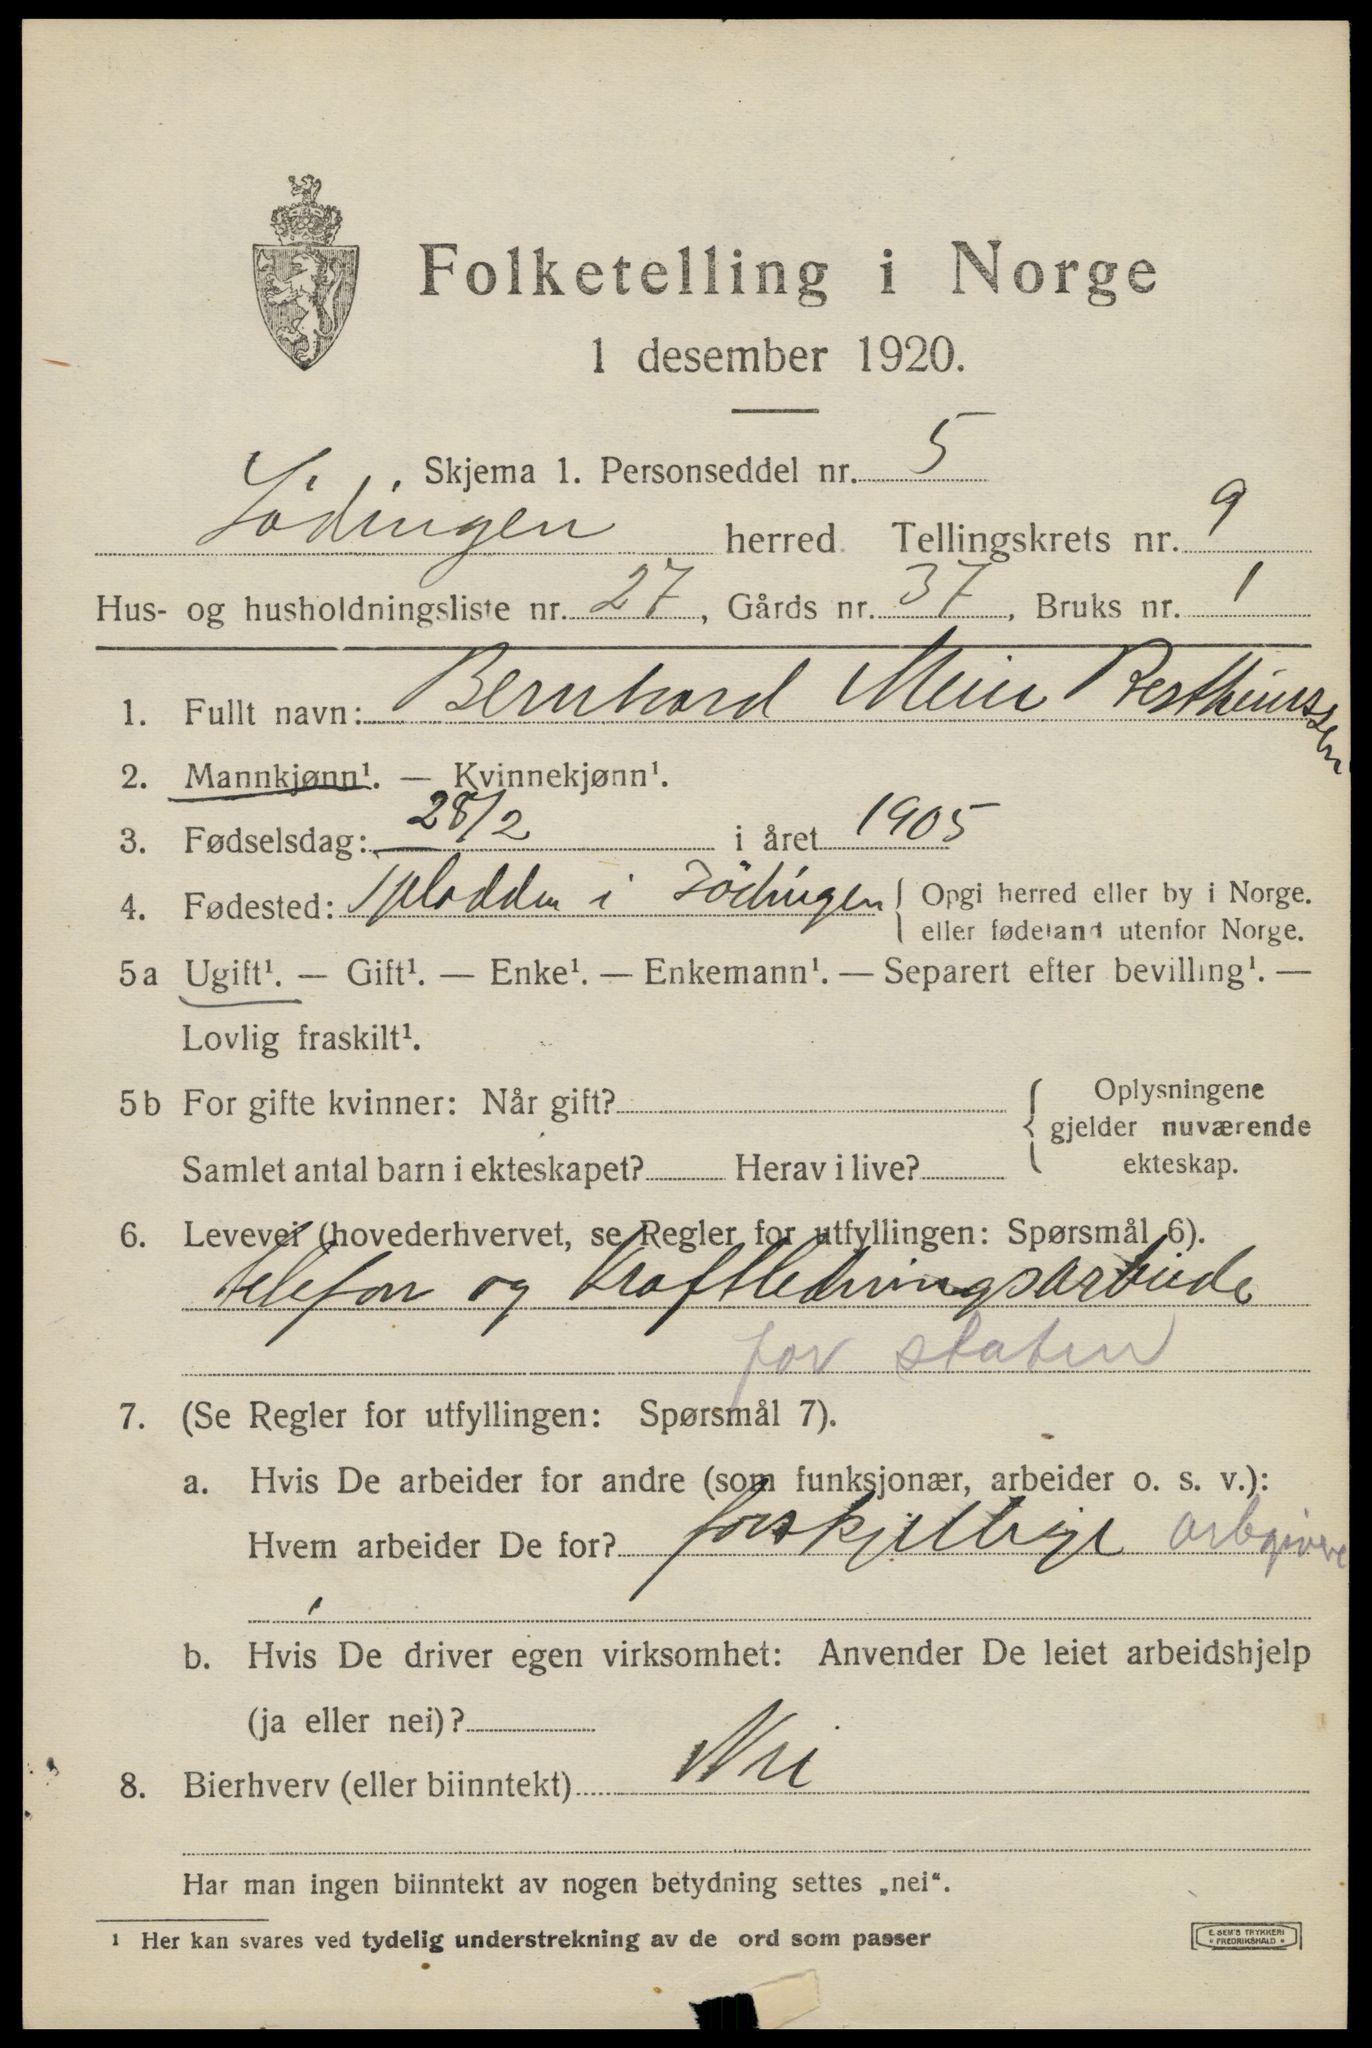 Folketelling i Norge
1 desember 1920.
Skjema 1. Personseddel nr. 5
Lödingen herred. Tellingskrets nr. 9
Hus- og husholdningsliste nr. 27, Gårds nr. 37, Bruks nr. 1
1. Fullt navn: Bernhard Meier
2. Mannkjønn¹. — Kvinnekjønn¹.
3. Fødselsdag: 28/2 i året 1905
4. Fødested: i Lödingen { Opgi herred eller by i Norge.
eller fødeland utenfor Norge.
5a Ugift¹. — Gift¹. — Enke¹. — Enkemann¹. — Separert efter bevilling¹. —
Lovlig fraskilt¹.
5b For gifte kvinner: Når gift? { Oplysningene
gjelder nuværende
Samlet antal barn i ekteskapet? Herav i live? ekteskap.
6. Levevei (hovederhvervet, se Regler for utfyllingen: Spørsmål 6).
telefon og kraftledningsarbeide
for staten
7. (Se Regler for utfyllingen: Spørsmål 7).
a. Hvis De arbeider for andre (som funksjonær, arbeider o. s. v.):
Hvem arbeider De for? forskjellige arbgivere
b. Hvis De driver egen virksomhet: Anvender De leiet arbeidshjelp
(ja eller nei)?
8. Bierhverv (eller biinntekt) Nei
Har man ingen biinntekt av nogen betydning settes „nei“.
¹ Her kan svares ved tydelig understrekning av de ord som passer
E. SEM'S TRYKKERI
FREDRIKSHALD